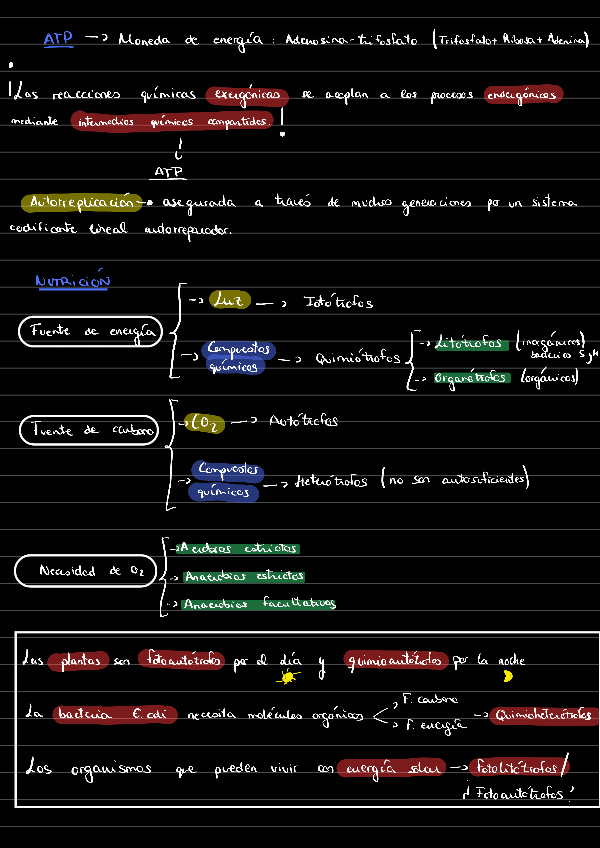 ATP → Moneda de energía : Adenosina-trifosfato (Trifosfato + Ribosa + Adenina)
¡Las reacciones químicas exergónicas se acoplan a los procesos endergónicos
mediante intermedios químicos compartidos.!
ATP
Autorreplicación → asegurada a través de muchas generaciones por un sistema
codificante lineal autorreparador.
NUTRICIÓN
Fuente de energía
→ Luz → Fotótrofos
→ Compuestos químicos → Quimiótrofos
→ Litótrofos (inorgánicos)
→ Organótrofos (orgánicos)
Fuente de carbono
→ CO2 → Autótrofos
→ Compuestos químicos → Heterótrofos (no son autosuficientes)
Necesidad de O2
→ Aerobios estrictos
→ Anaerobios estrictos
→ Anaerobios facultativos
Las plantas son fotoautótrofos por el día y quimioautótrofos por la noche
La bacteria E.coli necesita moléculas orgánicas
F. carbono
F. energía
→ Quimioheterótrofos
Los organismos que pueden vivir con energía solar → fotolitótrofos/
Fotoautótrofos